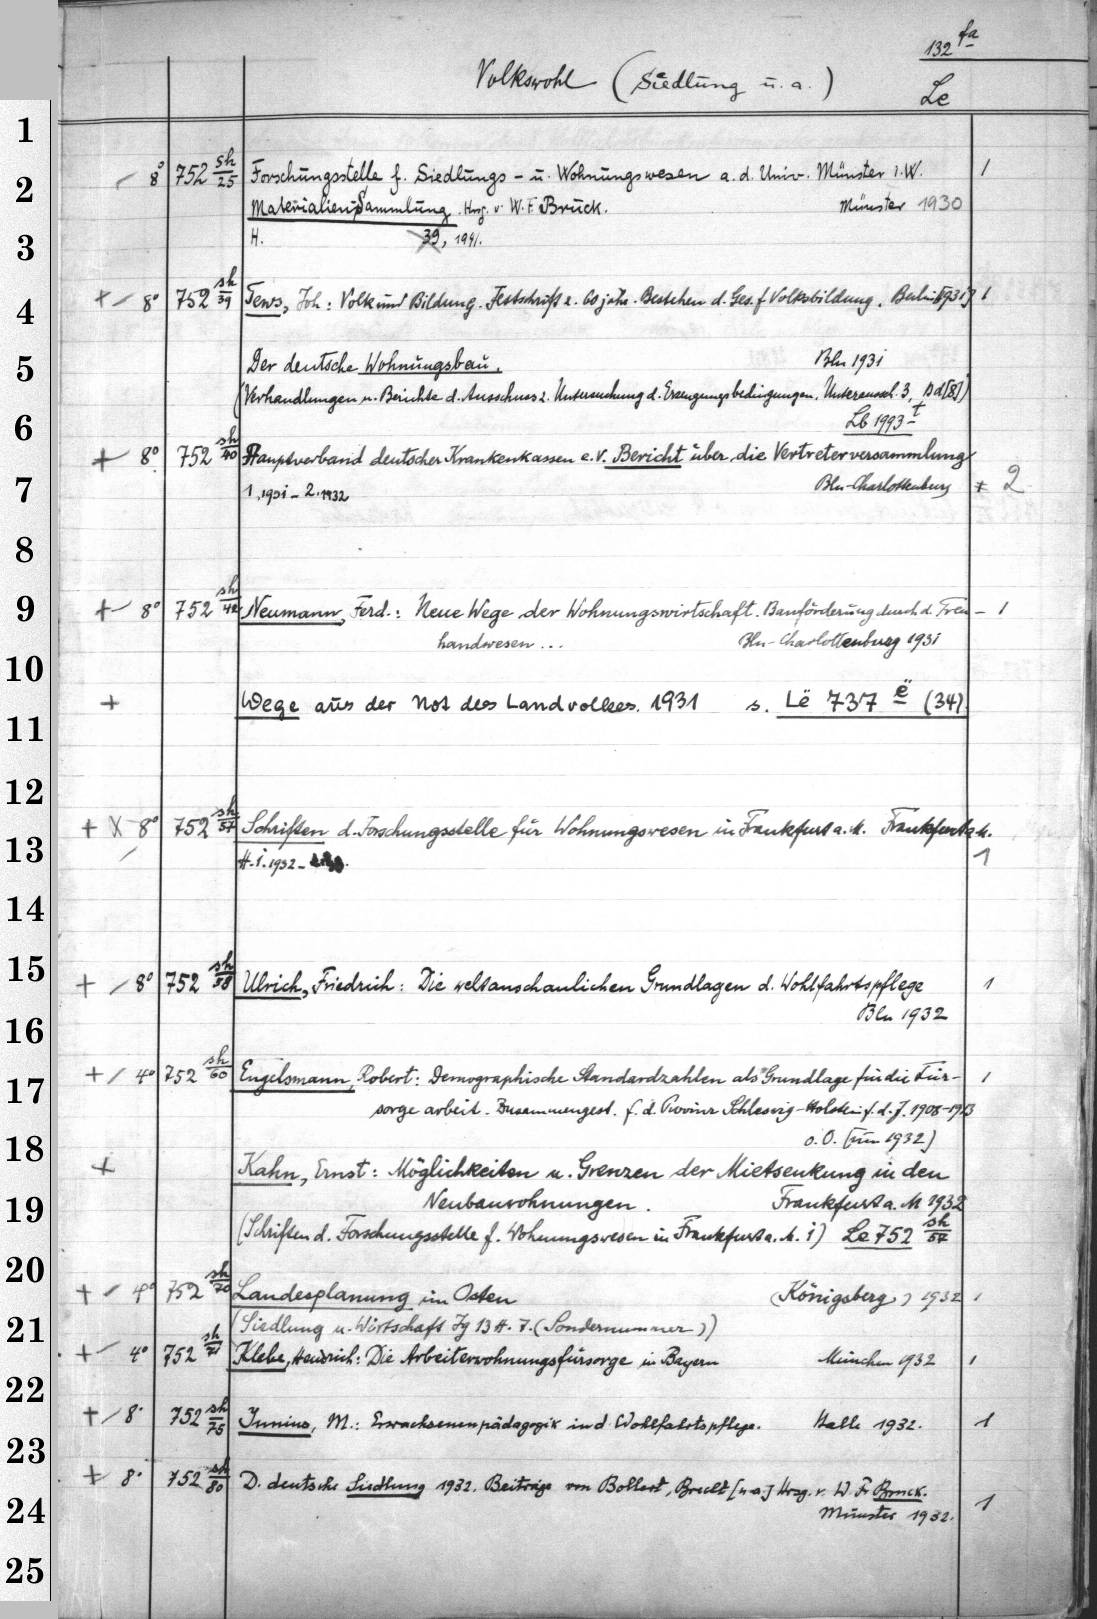 132 fa
Volkswohl (Siedlung u. a.) Le
1
8° 752 sh/25 Forschungsstelle f. Siedlungs- u. Wohnungswesen a. d. Univ. Münster i. W. 1
2
Materialien Sammlung. Hrsg. v. W. F. Bruck. Münster 1930
3
H. 39, 1941.
+ / 8° 752 sh/39 Tews, Joh: Volk und Bildung. Festschrift z. 60 jähr. Bestehen d. Ges. f Volksbildung. Berlin [1931] 1
4
5
Der deutsche Wohnungsbau. Bln 1931
(Verhandlungen u. Berichte d. Ausschuss z. Untersuchung d. Erzeugungsbedingungen. Unterausch. 3, Bd [8])
6
Lb 1993 t
+ 8° 752 sh/40 Hauptverband deutscher Krankenkassen e. V. Bericht über die Vertreterversammlung
7
1, 1931 - 2. 1932 Bln-Charlottenburg + 2
8
9
+ / 8° 752 sh/42 Neumann, Ferd.: Neue Wege der Wohnungswirtschaft. Bauförderung durch d. Treu- 1
handwesen ... Bln-Charlottenburg 1931
10
+ Wege aus der Not des Landvolkes. 1931 s. Lë 737 ë (34)
11
12
+ X 8° 752 sh/57 Schriften d. Forschungsstelle für Wohnungswesen in Frankfurt a. M. Frankfurt a. M.
13
H. 1. 1932 - 1
14
15
+ / 8° 752 sh/58 Ulrich, Friedrich: Die weltanschaulichen Grundlagen d. Wohlfahrtspflege 1
16
Bln 1932
17
+ / 4° 752 sh/60 Engelsmann, Robert: Demographische Standardzahlen als Grundlage für die Für- 1
sorge arbeit. Zusammengest. f. d. Provinz Schleswig-Holstein f. d. J. 1908-1913
18
o. O. [um 1932]
+ Kahn, Ernst: Möglichkeiten u. Grenzen der Mietsenkung in den
19
Neubauwohnungen. Frankfurt a. M 1932
(Schriften d. Forschungsstelle f. Wohnungswesen in Frankfurt a. M. 1) Le 752 sh/57
20
+ / 4° 752 sh/70 Landesplanung im Osten (Königsberg) 1932 1
21
(Siedlung u. Wirtschaft Jg 13 H. 7. (Sondernummer))
+ 4° 752 sh/71 Klebe, Heinrich: Die Arbeiterwohnungsfürsorge in Bayern München 1932 1
22
+ / 8° 752 sh/75 Junius, M.: Erwachsenenpädagogik in d Wohlfahrtspflege. Halle 1932. 1
23
+ 8° 752 sh/80 D. deutsche Siedlung 1932. Beiträge von Bollert, Brecht [u a] Hrsg. v. W. Fr Bruck.
24
Münster 1932. 1
25